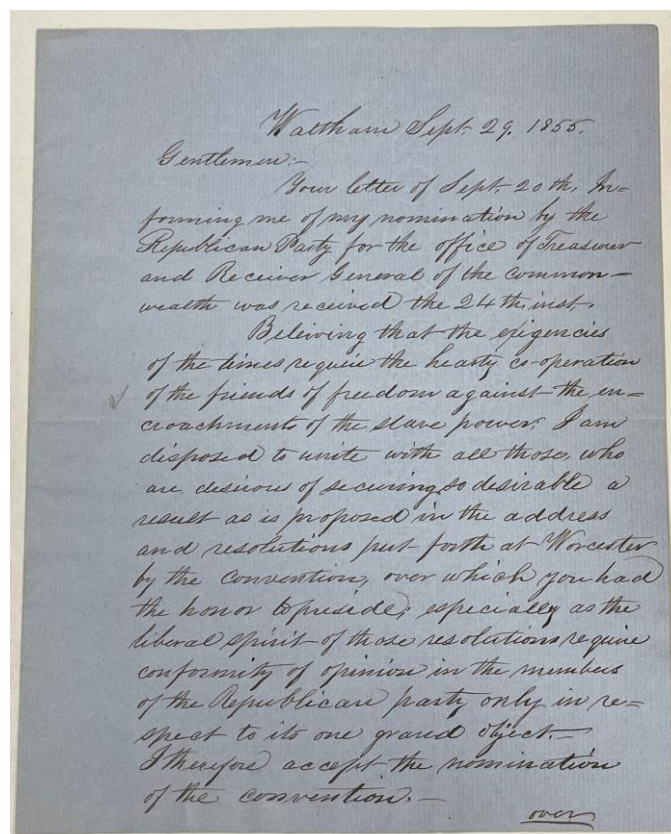 Waltham Sept. 29. 1855.
Gentlemen;-
Your letter of Sept. 20th, In-
forming me of my nomination by the
Republican Party for the office of Treasurer
and Receiver General of the common-
wealth was received the 24th inst.
Beliving that the exigencies
of the times requie the hearty co-operation
of the friends of freedom against the en-
croachments of the slave power, I am
disposed to unite with all those, who
are desirous of securing so desirable a
result as is proposed in the address
and resolutions put forth at Worcester
by the convention, over which you had
the honor to preside, especially as the
liberal spirit of those resolutions requie
conformity of opinion in the members
of the Republican party only in re-
spect to its one grand object.-
I therefore accept the nomination
of the convention.-
over